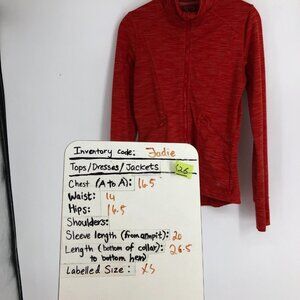 Inventory code: Jadie
Tops/Dresses/Jackets
Chest (A to A): 16.5
Waist: 14
Hips: 16.5
Shoulders:
Sleeve length (from armpit): 20
Length (bottom of collar to bottom hem) 26.5
Labelled Size: XS